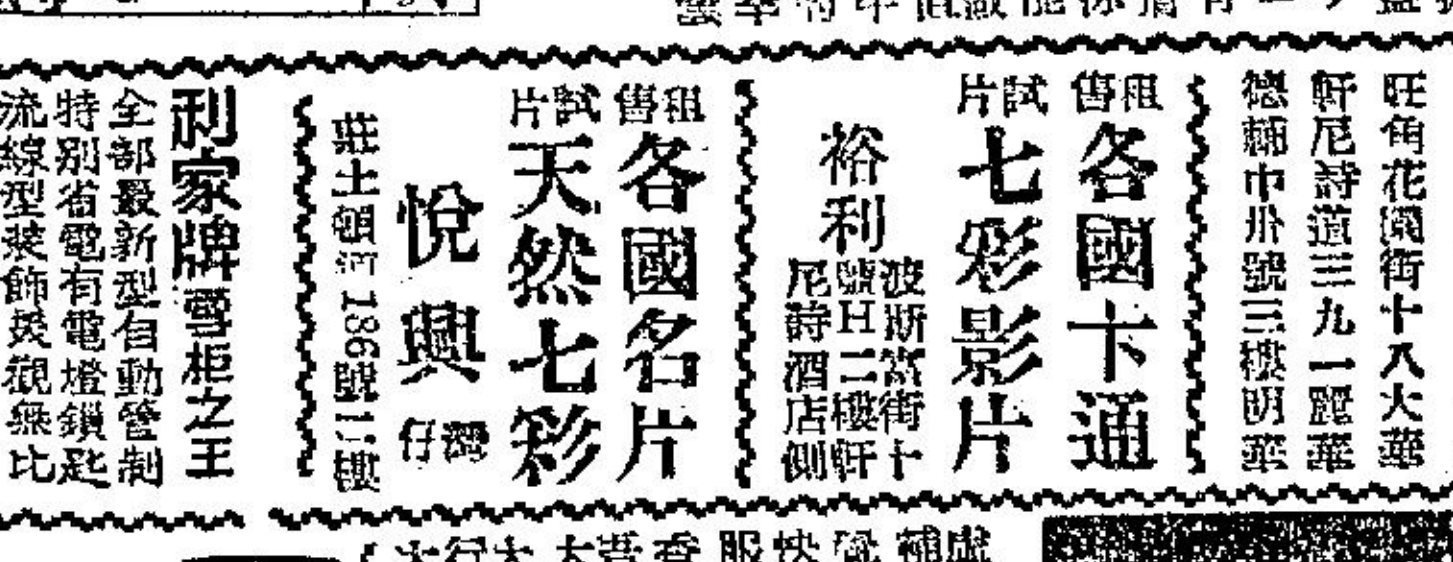 旺角花園街十八大華
軒尼詩道三九一麗華
德輔中卅號三樓明華
租售
各國卡通
試片
七彩影片
裕利
波斯富街十
號H二樓軒
尼詩酒店側
租售
各國名片
試片
天然七彩
悅興
灣仔
莊士頓道186號1樓
利家牌雪柜之王
全部最新型自動管制
特別省電有電燈鎖匙
流線型裝飾美觀無比